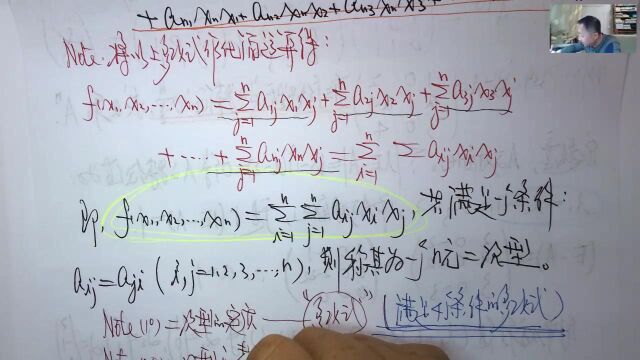 + aₙ₁xₙx₁ + aₙ₂xₙx₂ + aₙ₃xₙx₃ +
Note: 将以上多项式
f(x₁,x₂,…,xₙ) = Σⱼ₌₁ⁿ a₁ⱼx₁xⱼ + Σⱼ₌₁ⁿ a₂ⱼx₂xⱼ + Σⱼ₌₁ⁿ a₃ⱼx₃xⱼ
+ ⋯ + Σⱼ₌₁ⁿ aₙⱼxₙxⱼ = Σᵢ₌₁ⁿ Σ aᵢⱼxᵢxⱼ
即, f(x₁,x₂,…,xₙ) = Σᵢ₌₁ⁿ Σⱼ₌₁ⁿ aᵢⱼxᵢxⱼ, 若满足条件:
aᵢⱼ=aⱼᵢ (i,j=1,2,3,…,n), 则称其为一个n元二次型。
Note(1°) 二次型的实质 —— "多项式" (满足条件的多项式)